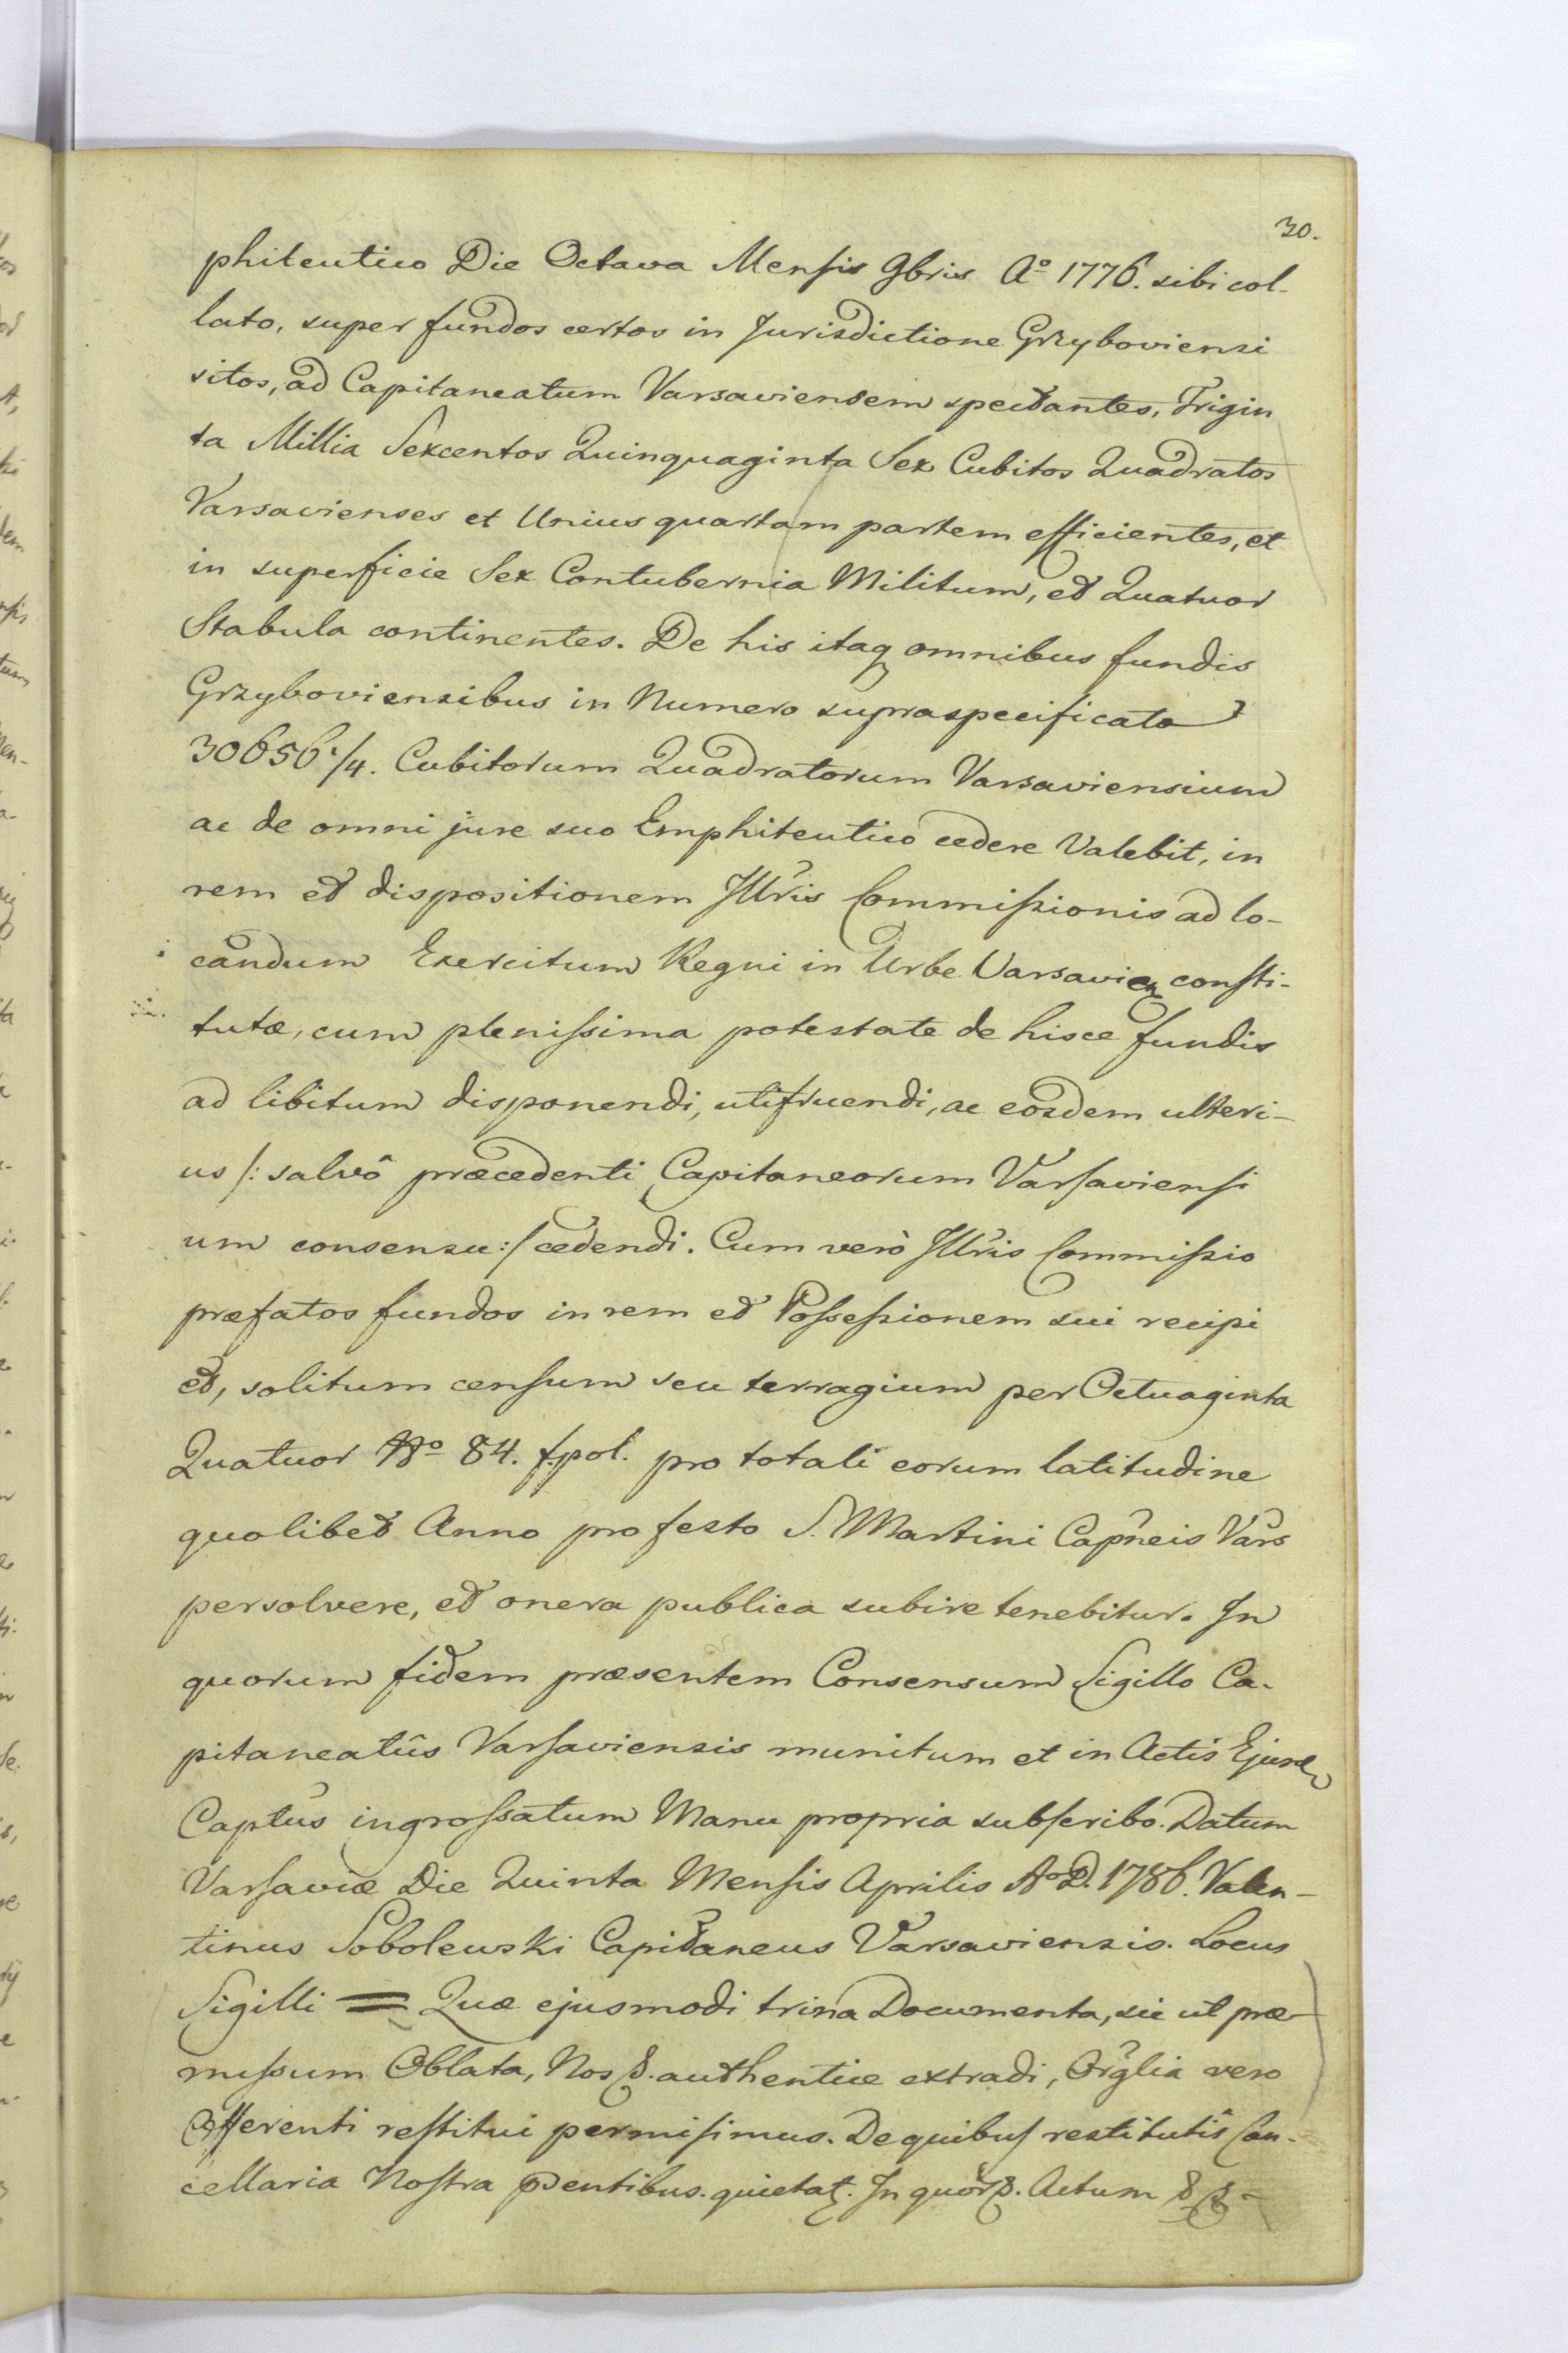 30.
phiteutico Die Octava Mensis 9bris Aº 1776. sibi col-
lato, super fundos certos in Jurisdictione Grzyboviensi
sitos, ad Capitaneatum Varsaviensem spectantes, Trigin
ta Millia Sexcentos Quinquaginta Sex Cubitos Quadratos
Varsavienses et Unius quartam partem efficientes, et
in superficie Sex Contubernia Militum, et Quatuor
Stabula continentes. De his itaq omnibus fundis
Grzyboviensibus in Numero supraspecificato
30656 1/4. Cubitorum Quadratorum Varsaviensium
ac de omni jure suo Emphiteutico cedere Valebit, in
rem et dispositionem Illris Commissionis ad lo-
candum Exercitum Regni in Urbe Varsavien consti-
tutæ, cum plenissima potestate de hisce fundis
ad libitum disponendi, utifruendi, ac eosdem ulteri-
us /: salvô præcedenti Capitaneorum Varsaviensi
um consensu :/ cedendi. Cum verò Illris Commissio
præfatos fundos in rem et Possessionem sui recipi
et, solitum censum seu terragium per Octuaginta
Quatuor Nº 84. f.pol. pro totali eorum latitudine
quolibet Anno pro festo S. Martini Capneis Vars
persolvere, et onera publica subire tenebitur. In
quorum fidem præsentem Consensum Sigillo Ca-
pitaneatûs Varsaviensis munitum et in Actis Ejusd
Captus ingrossatum Manu propria subscribo. Datum
Varsaviæ Die Quinta Mensis Aprilis AºD. 1786. Valen-
tinus Sobolewski Capitaneus Varsaviensis. Locus
Sigilli = Quæ ejusmodi trina Documenta, sic ut præ-
missum Oblata, Nos authentice extradi, Orglia vero
Offerenti restitui permisimus. De quibus restitutis Can-
cellaria Nostra pentibus. quietat. In quor. Actum